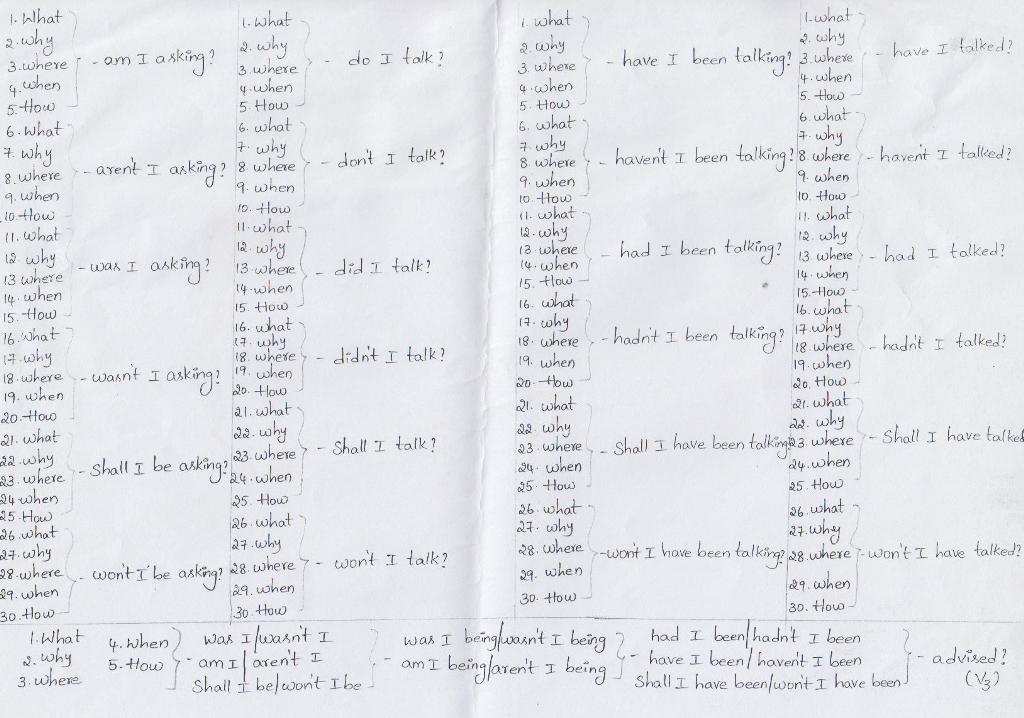 1. What
2. why
3. where
4. when
5. How
- am I asking?
6. What
7. why
8. where
9. when
10. How
- aren't I asking?
11. what
12. why
13 where
14. when
15. How
- was I asking?
16. what
17. why
18. where
19. when
20. How
- wasn't I asking?
21. what
22. why
23. where
24 when
25. How
- Shall I be asking?
26. what
27. why
28. where
29. when
30. How
- won't I be asking?
1. what
2. why
3. where
4. when
5. How
- do I talk?
6. what
7. why
8 where
9. when
10. How
- don't I talk?
11. what
12. why
13. where
14. when
15. How
- did I talk?
16. what
17. why
18. where
19. when
20. How
- didn't I talk?
21. what
22. why
23. where
24. when
25. How
- Shall I talk?
26. what
27. why
28. where
29. when
30. How
- won't I talk?
1. what
2. why
3. where
4. when
5. How
- have I been talking?
6. what
7. why
8. where
9. when
10. How
- haven't I been talking?
11. what
12. why
13. where
14. when
15. How
- had I been talking?
16. what
17. why
18. where
19. when
20. How
- hadn't I been talking?
21. what
22. why
23. where
24. when
25. How
- Shall I have been talking
26. what
27. why
28. where
29. when
30. How
- won't I have been talking?
1. what
2. why
3. where
4. when
5. How
- have I talked?
6. what
7. why
8. where
9. when
10. How
- haven't I talked?
11. what
12. why
13. where
14. when
15. How
- had I talked?
16. what
17. why
18. where
19. when
20. How
- hadn't I talked?
21. what
22. why
23. where
24. when
25. How
- Shall I have talked
26. what
27. why
28. where
29. when
30. How
- won't I have talked?
1. What
2. why
3. where
4. when
5. How
was I/wasn't I
- am I/aren't I
Shall I be/won't I be
- was I being/wasn't I being
am I being/aren't I being
had I been/hadn't I been
- have I been/haven't I been
Shall I have been/won't I have been
- advised?
(V3)